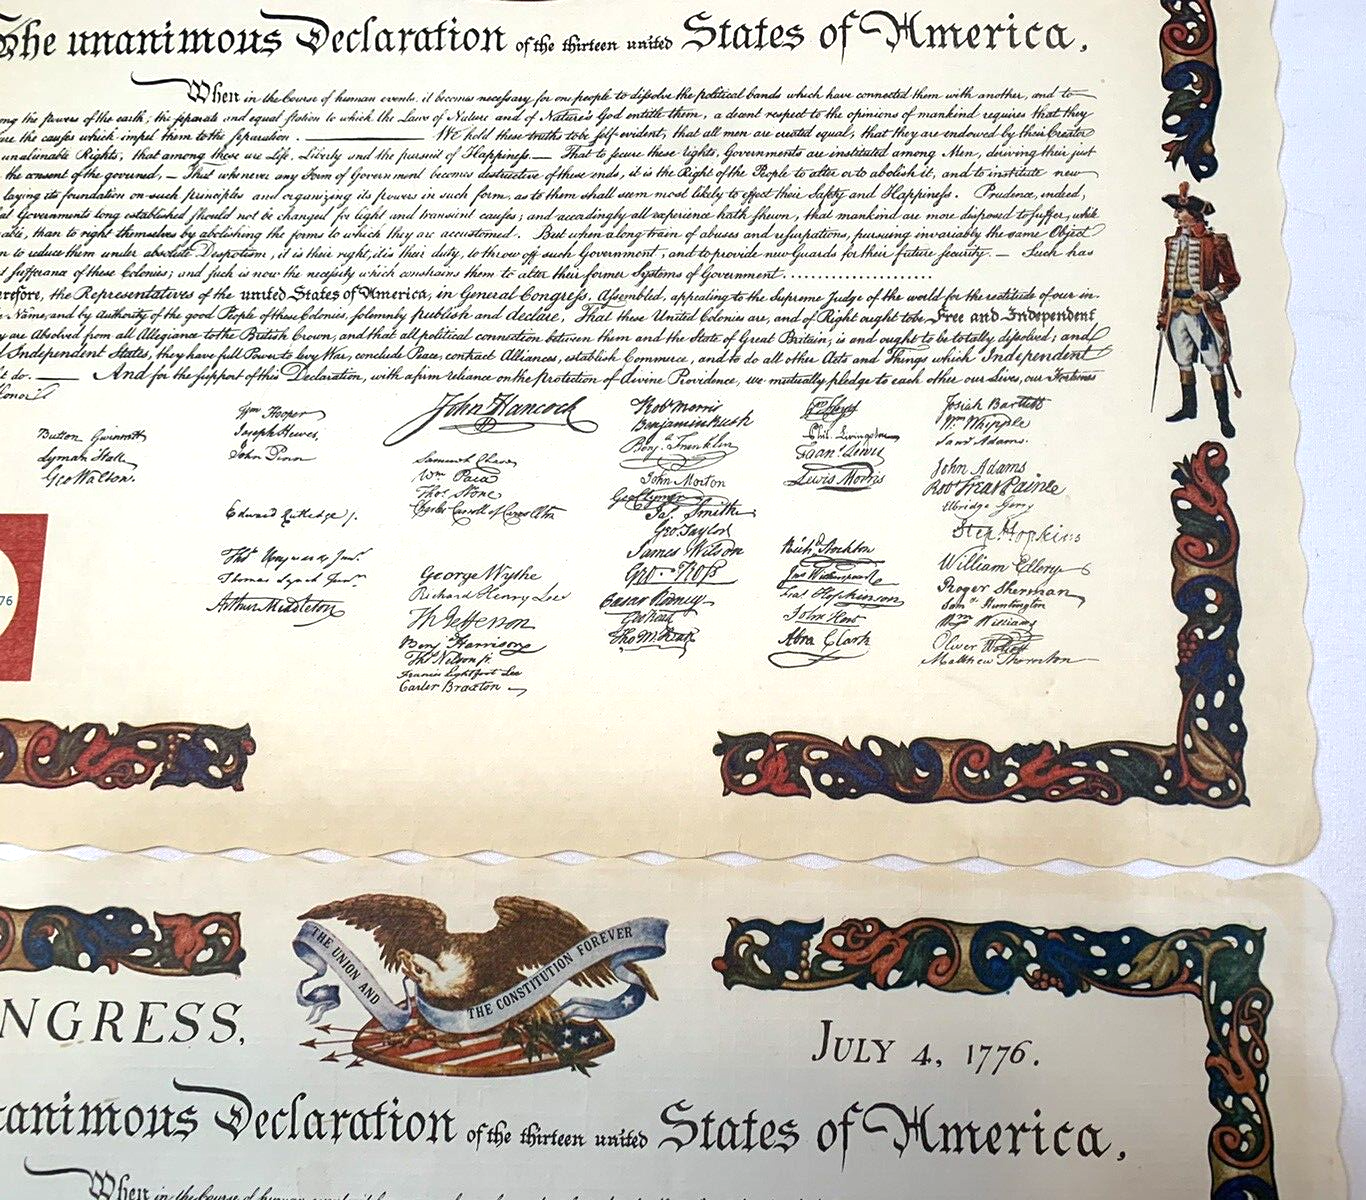 The unanimous Declaration of the thirteen united States of America,
When in the Course of human events, it becomes necessary for one people to dissolve the political bands which have connected them with another, and to
ong the powers of the earth, the separate and equal station to which the Laws of Nature and of Nature's God entitle them, a decent respect to the opinions of mankind requires that they
re the causes which impel them to the separation. We hold these truths to be self-evident, that all men are created equal, that they are endowed by their Creator
unalienable Rights, that among these are Life, Liberty and the pursuit of Happiness. — That to secure these rights, Governments are instituted among Men, deriving their just
the consent of the governed, — That whenever any Form of Government becomes destructive of these ends, it is the Right of the People to alter or to abolish it, and to institute new
laying its foundation on such principles and organizing its powers in such form, as to them shall seem most likely to effect their Safety and Happiness. Prudence, indeed,
at Governments long established should not be changed for light and transient causes; and accordingly all experience hath shewn, that mankind are more disposed to suffer, while
than to right themselves by abolishing the forms to which they are accustomed. But when a long train of abuses and usurpations, pursuing invariably the same Object
n to reduce them under absolute Despotism, it is their right, it is their duty, to throw off such Government, and to provide new Guards for their future security. — Such has
sufferance of these Colonies; and such is now the necessity which constrains them to alter their former Systems of Government.....................
erefore, the Representatives of the united States of America, in General Congress, Assembled, appealing to the Supreme Judge of the world for the rectitude of our in-
Name, and by Authority of the good People of these Colonies, solemnly publish and declare, That these United Colonies are, and of Right ought to be Free and Independent
y are Absolved from all Allegiance to the British Crown, and that all political connection between them and the State of Great Britain, is and ought to be totally dissolved; and
Independent States, they have full Power to levy War, conclude Peace, contract Alliances, establish Commerce, and to do all other Acts and Things which Independent
t do. And for the support of this Declaration, with a firm reliance on the protection of divine Providence, we mutually pledge to each other our Lives, our Fortunes
Honor
Button Gwinnett
Lyman Hall
Geo Walton.
Wm Hooper
Joseph Hewes,
John Penn
Edward Rutledge /.
Thos Heyward Junr.
Thomas Lynch Junr.
Arthur Middleton
John Hancock
Samuel Chase
Wm Paca
Thos Stone
Charles Carroll of Carrollton
George Wythe
Richard Henry Lee
Th Jefferson
Benj Harrison
Thos Nelson jr.
Francis Lightfoot Lee
Carter Braxton
Robt Morris
Benjamin Rush
Benja Franklin
John Morton
Geo Clymer
Jas. Smith
Geo. Taylor
James Wilson
Geo. Ross
Caesar Rodney
Geo Read
Tho M:Kean
Wm Floyd
Phil. Livingston
Frans. Lewis
Lewis Morris
Richd Stockton
Jno Witherspoon
Fras Hopkinson
John Hart
Abra Clark
Josiah Bartlett
Wm Whipple
Saml Adams.
John Adams
Robt Treat Paine
Elbridge Gerry
Step Hopkins
William Ellery
Roger Sherman
Saml Huntington
Wm Williams
Oliver Wolcott
Matthew Thornton
76
THE UNION AND THE CONSTITUTION FOREVER
NGRESS,
JULY 4, 1776.
nanimous Declaration of the thirteen united States of America,
When in the Course of human